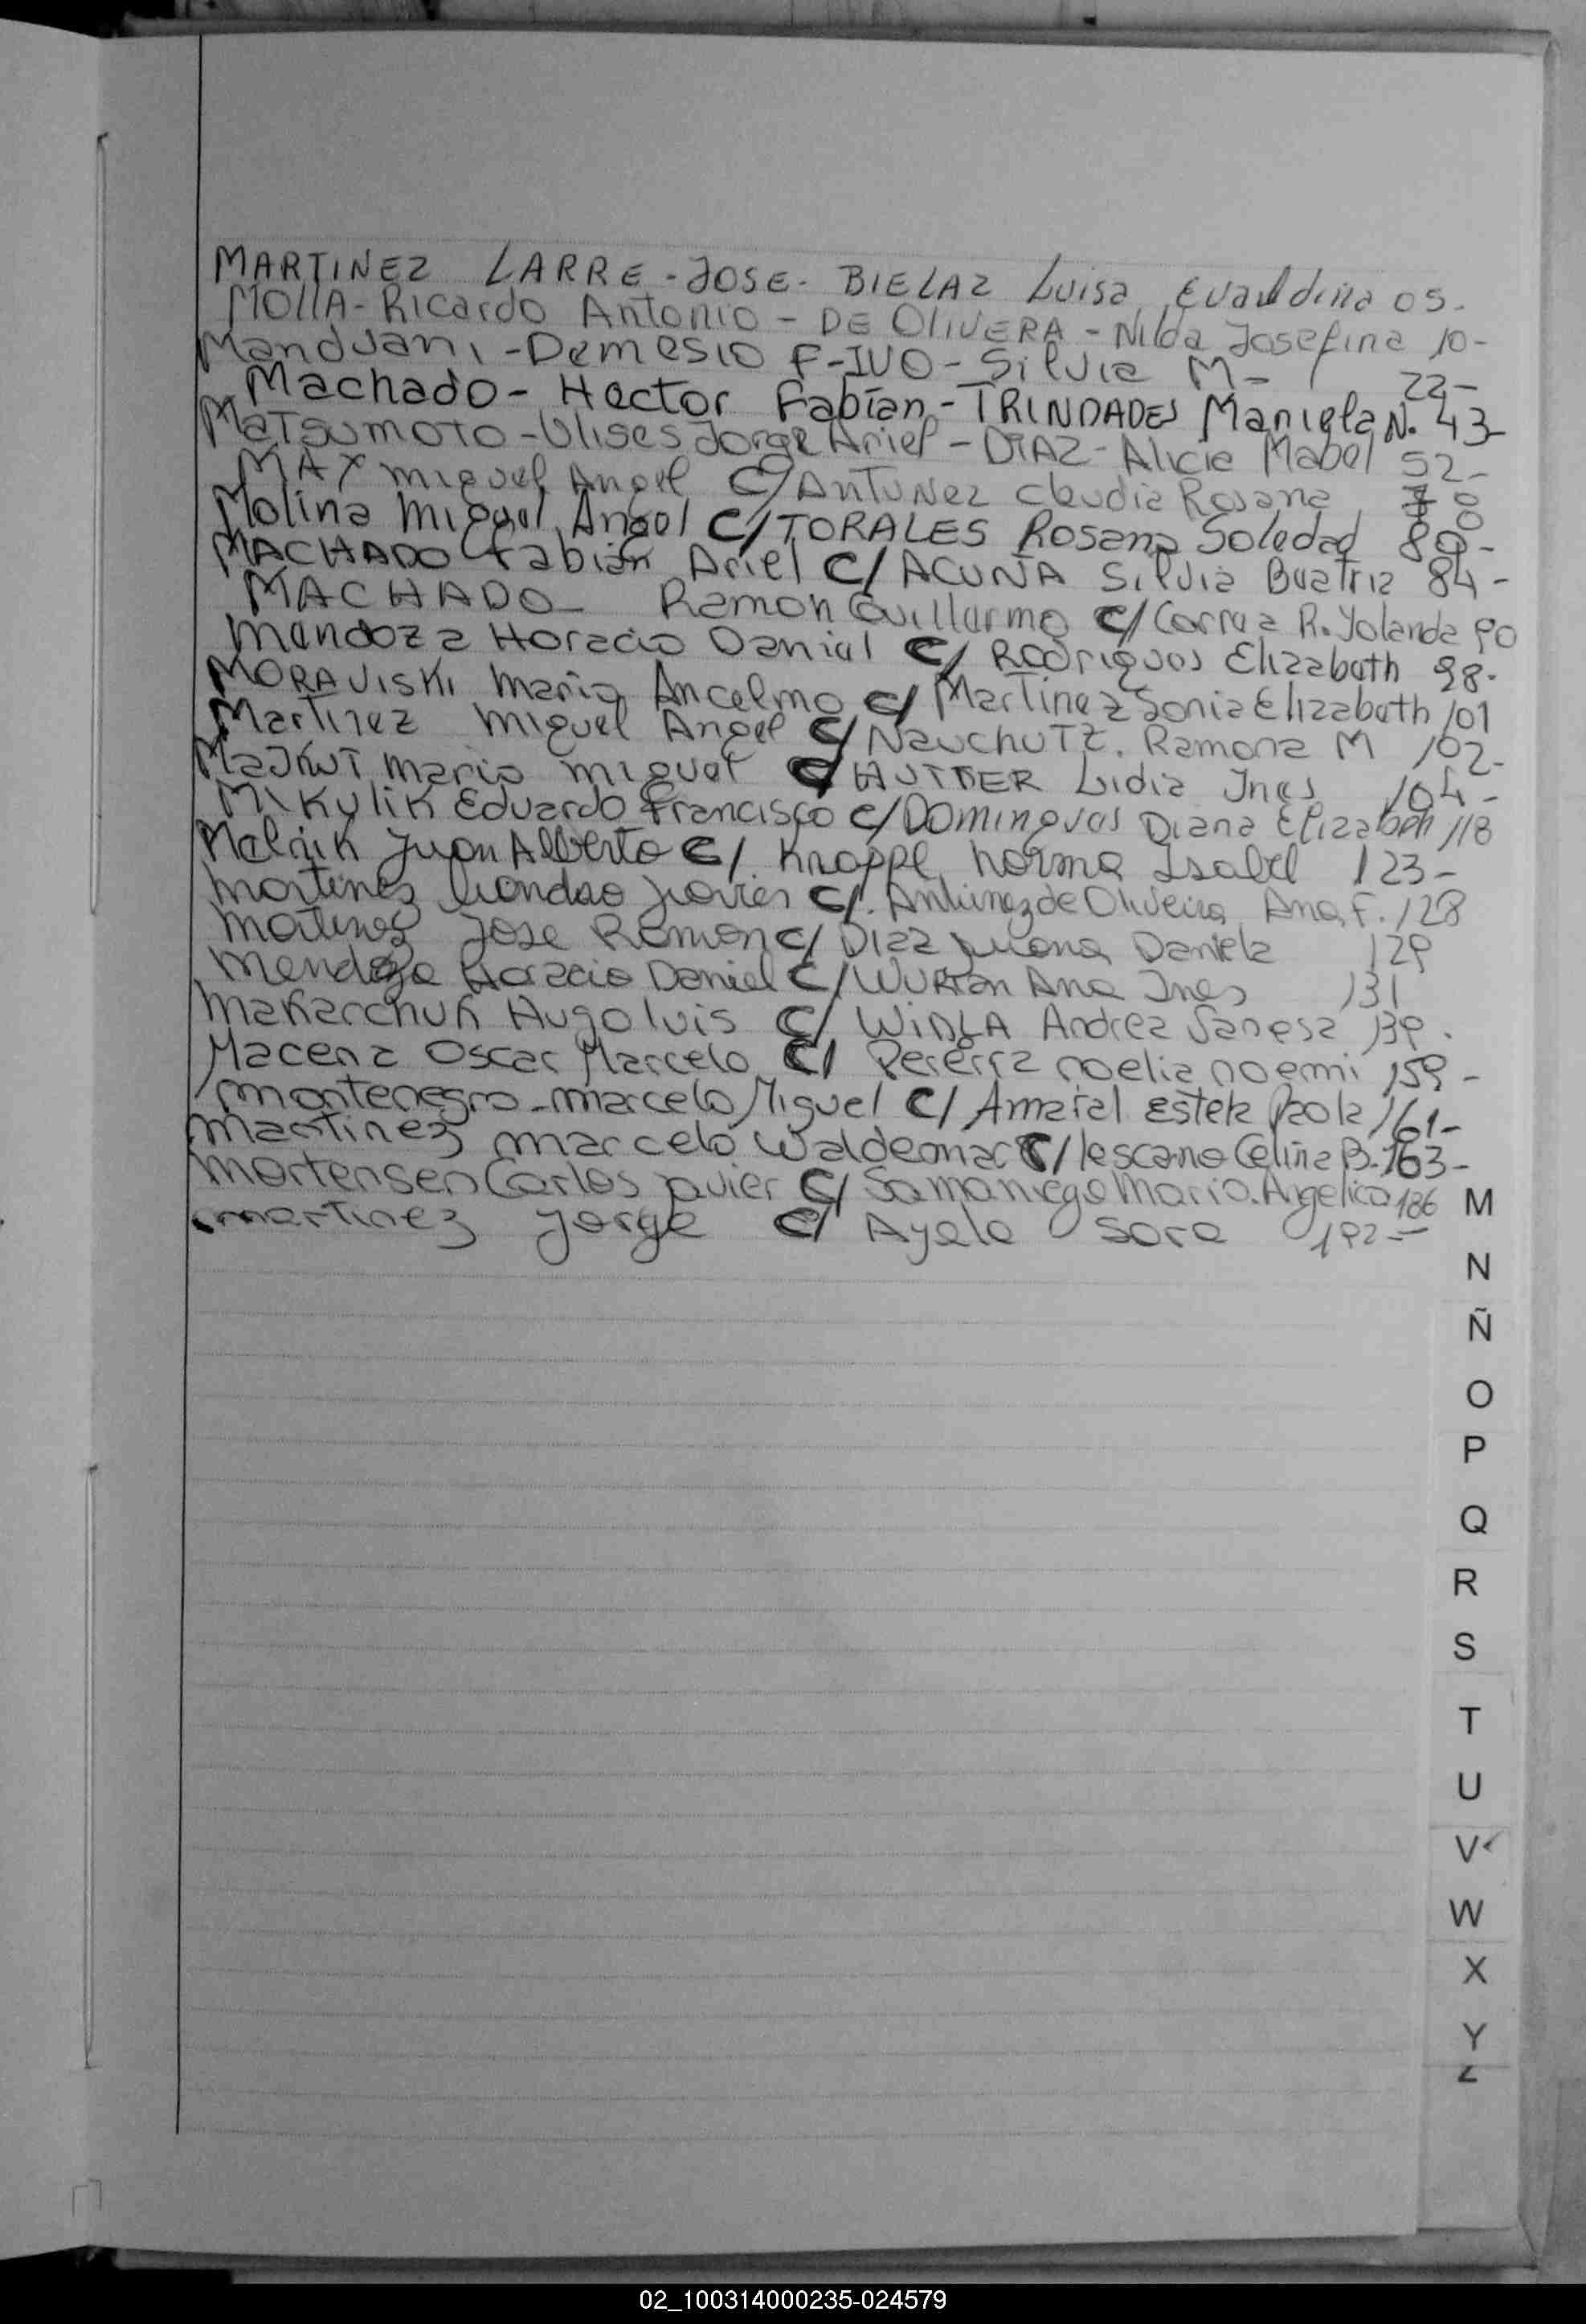 MARTINEZ LARRE - JOSE - BIELAZ Luisa Evaldina 05.
MOllA - Ricardo Antonio - DE OliVERA - Nilda Josefina 10-
Manduani - Demesio F - IVO - Silvia M - 22-
Machado - Hector Fabian - TRINDADES Mariela N. 43-
MaTsumoTo - Ulises Jorge Ariel - DIAZ - Alicia Mabel 52-
MAX Miguel Angel C/ ANTUNez Claudia Rosana
Molina Miguel Angel C/ TORALES Rosana Soledad 80-
MACHADO Fabian Ariel C/ ACUÑA Silvia Beatriz 84-
MACHADO - Ramon Guillermo C/ Correa R. Yolanda 90
Mendoza Horacio Daniel C/ Rodrigues Elizabeth 98-
MORAVISKI Mario Ancelmo C/ Martinez Sonia Elizabeth 101
Martinez Miguel Angel C/ NauchuTz. Ramona M 102-
Majkut Mario Miguel C/ HUTTER Lidia Ines 104-
Mikylik Eduardo Francisco C/ Domingues Diana Elizabeth 118
Melnik Juan Alberto C/ Knappe Norma Isabel 123-
Martinez Javier C/. Antunez de Oliveira Ana F. 128
Martinez Jose Ramon C/ Diaz Daniela 129
Mendoza Horacio Daniel C/ Ana Ines 131
Makarchuk Hugo luis C/ WiDLA Andrea Vanesa 139.
Macena Oscar Marcelo C/ Pereira noelia noemi 159-
Montenegro - Marcelo Miguel C/ Amaral Estela Paola 161-
Martinez Marcelo Waldemar C/ lescano Celina B. 163-
Mortensen Carlos Javier C/ Samaniego Maria. Angelica 186
Martinez Jorge C/ Ayala Sara 192-
M
N
Ñ
O
P
Q
R
S
T
U
V
W
X
Y
Z
02_100314000235-024579